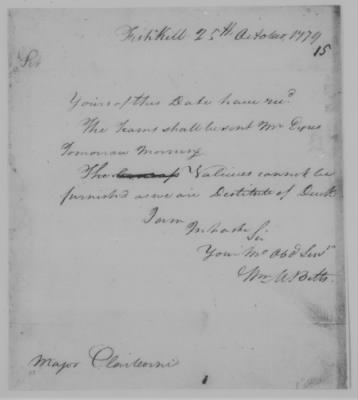 Fishkill 25th October 1779
15
Sir
Yours of this Date have recd
The Teams shall be sent Mr Eyres
Tomorrow Morning
The Valieces cannot be
furnished as we are Destitute of Duck
I am
In haste Sir
Your Mo Obd Servt
Wm A Betts
Major Claiborne